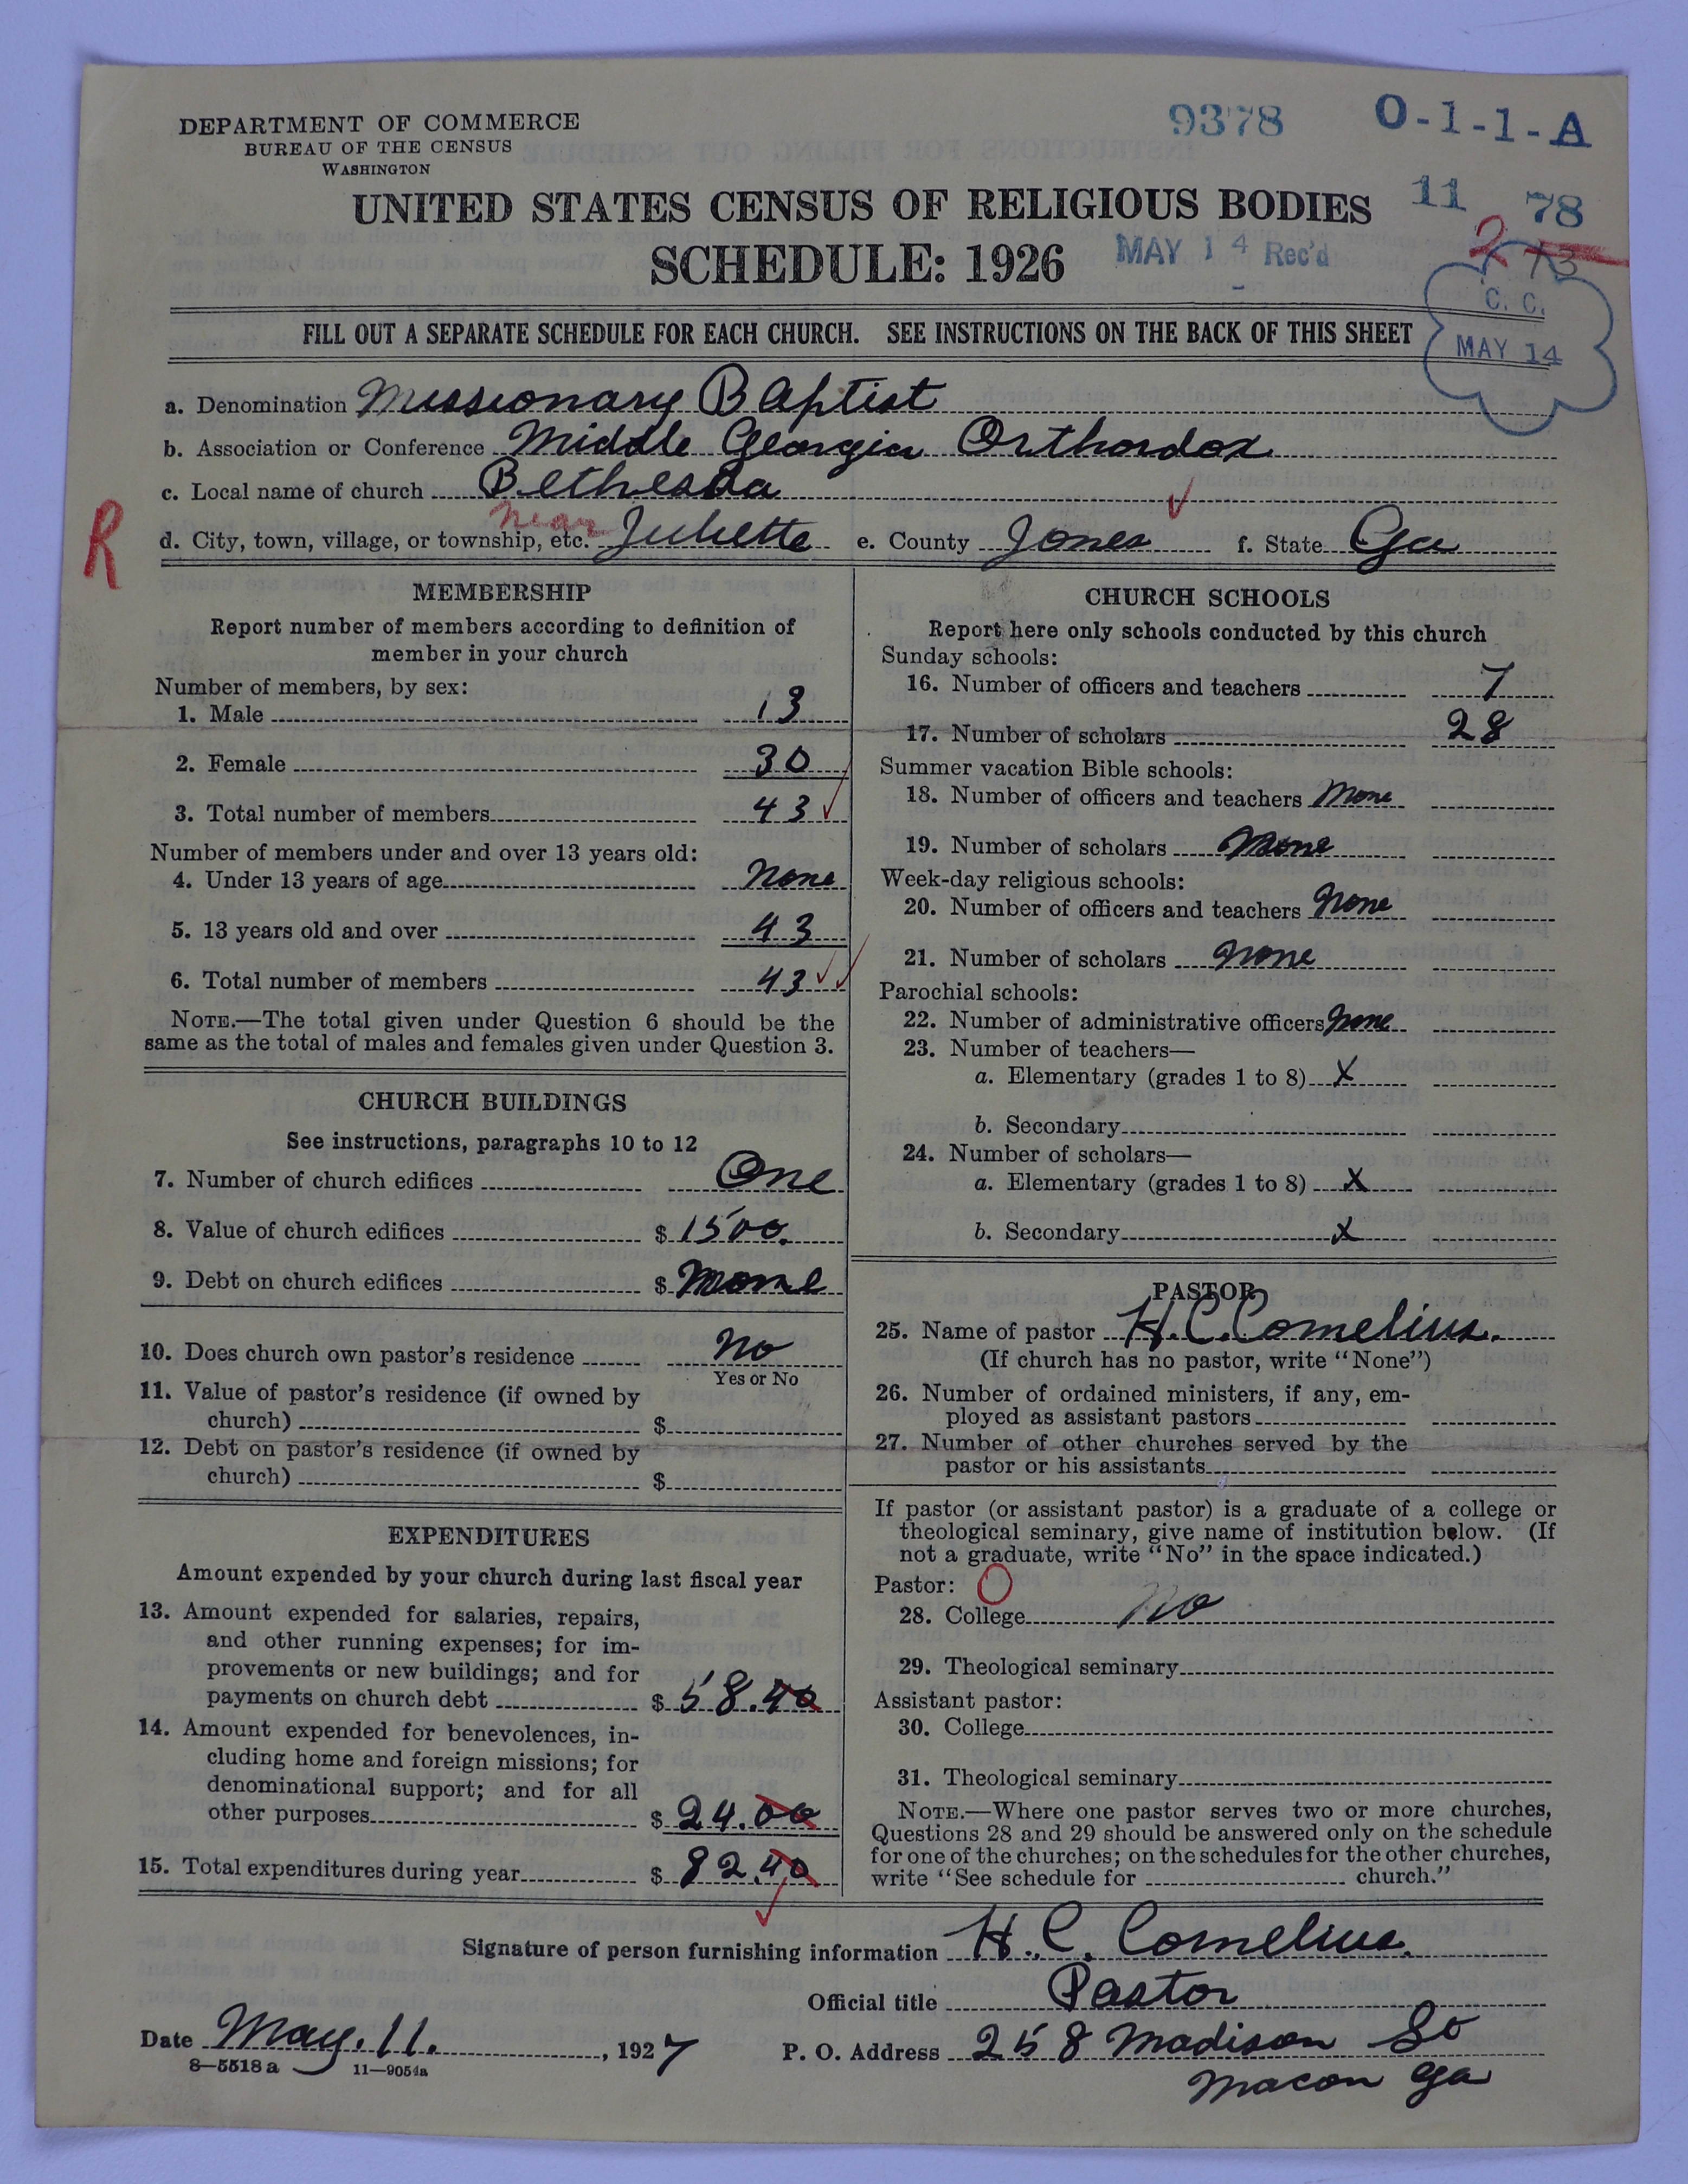 DEPARTMENT OF COMMERCE
BUREAU OF THE CENSUS
WASHINGTON
9378 O-1-1-A
UNITED STATES CENSUS OF RELIGIOUS BODIES 11 78
SCHEDULE: 1926 MAY 14 Rec'd 2 73
C. C.
MAY 14
FILL OUT A SEPARATE SCHEDULE FOR EACH CHURCH. SEE INSTRUCTIONS ON THE BACK OF THIS SHEET
a. Denomination Missionary Baptist
b. Association or Conference Middle Georgia Orthordox
c. Local name of church Bethesda
R
near
d. City, town, village, or township, etc. Juliette e. County Jones f. State Ga
MEMBERSHIP
Report number of members according to definition of
member in your church
Number of members, by sex:
1. Male 13
2. Female 30
3. Total number of members 43
Number of members under and over 13 years old:
4. Under 13 years of age None
5. 13 years old and over 43
6. Total number of members 43
NOTE.—The total given under Question 6 should be the
same as the total of males and females given under Question 3.
CHURCH BUILDINGS
See instructions, paragraphs 10 to 12
7. Number of church edifices One
8. Value of church edifices $ 1500.
9. Debt on church edifices $ None
10. Does church own pastor's residence No
Yes or No
11. Value of pastor's residence (if owned by
church) $
12. Debt on pastor's residence (if owned by
church) $
EXPENDITURES
Amount expended by your church during last fiscal year
13. Amount expended for salaries, repairs,
and other running expenses; for im-
provements or new buildings; and for
payments on church debt $ 58.40
14. Amount expended for benevolences, in-
cluding home and foreign missions; for
denominational support; and for all
other purposes $ 24.00
15. Total expenditures during year $ 82.40
CHURCH SCHOOLS
Report here only schools conducted by this church
Sunday schools:
16. Number of officers and teachers 7
17. Number of scholars 28
Summer vacation Bible schools:
18. Number of officers and teachers None
19. Number of scholars None
Week-day religious schools:
20. Number of officers and teachers None
21. Number of scholars None
Parochial schools:
22. Number of administrative officers None
23. Number of teachers—
a. Elementary (grades 1 to 8) X
b. Secondary
24. Number of scholars—
a. Elementary (grades 1 to 8) X
b. Secondary X
PASTOR
25. Name of pastor H. C. Cornelius.
(If church has no pastor, write "None")
26. Number of ordained ministers, if any, em-
ployed as assistant pastors
27. Number of other churches served by the
pastor or his assistants
If pastor (or assistant pastor) is a graduate of a college or
theological seminary, give name of institution below. (If
not a graduate, write "No" in the space indicated.)
Pastor: O
28. College No
29. Theological seminary
Assistant pastor:
30. College
31. Theological seminary
NOTE.—Where one pastor serves two or more churches,
Questions 28 and 29 should be answered only on the schedule
for one of the churches; on the schedules for the other churches,
write "See schedule for church."
Signature of person furnishing information H. C. Cornelius.
Official title Pastor
Date May. 11. , 1927 P. O. Address 258 Madison So
8—5518a 11—9054a
Macon Ga